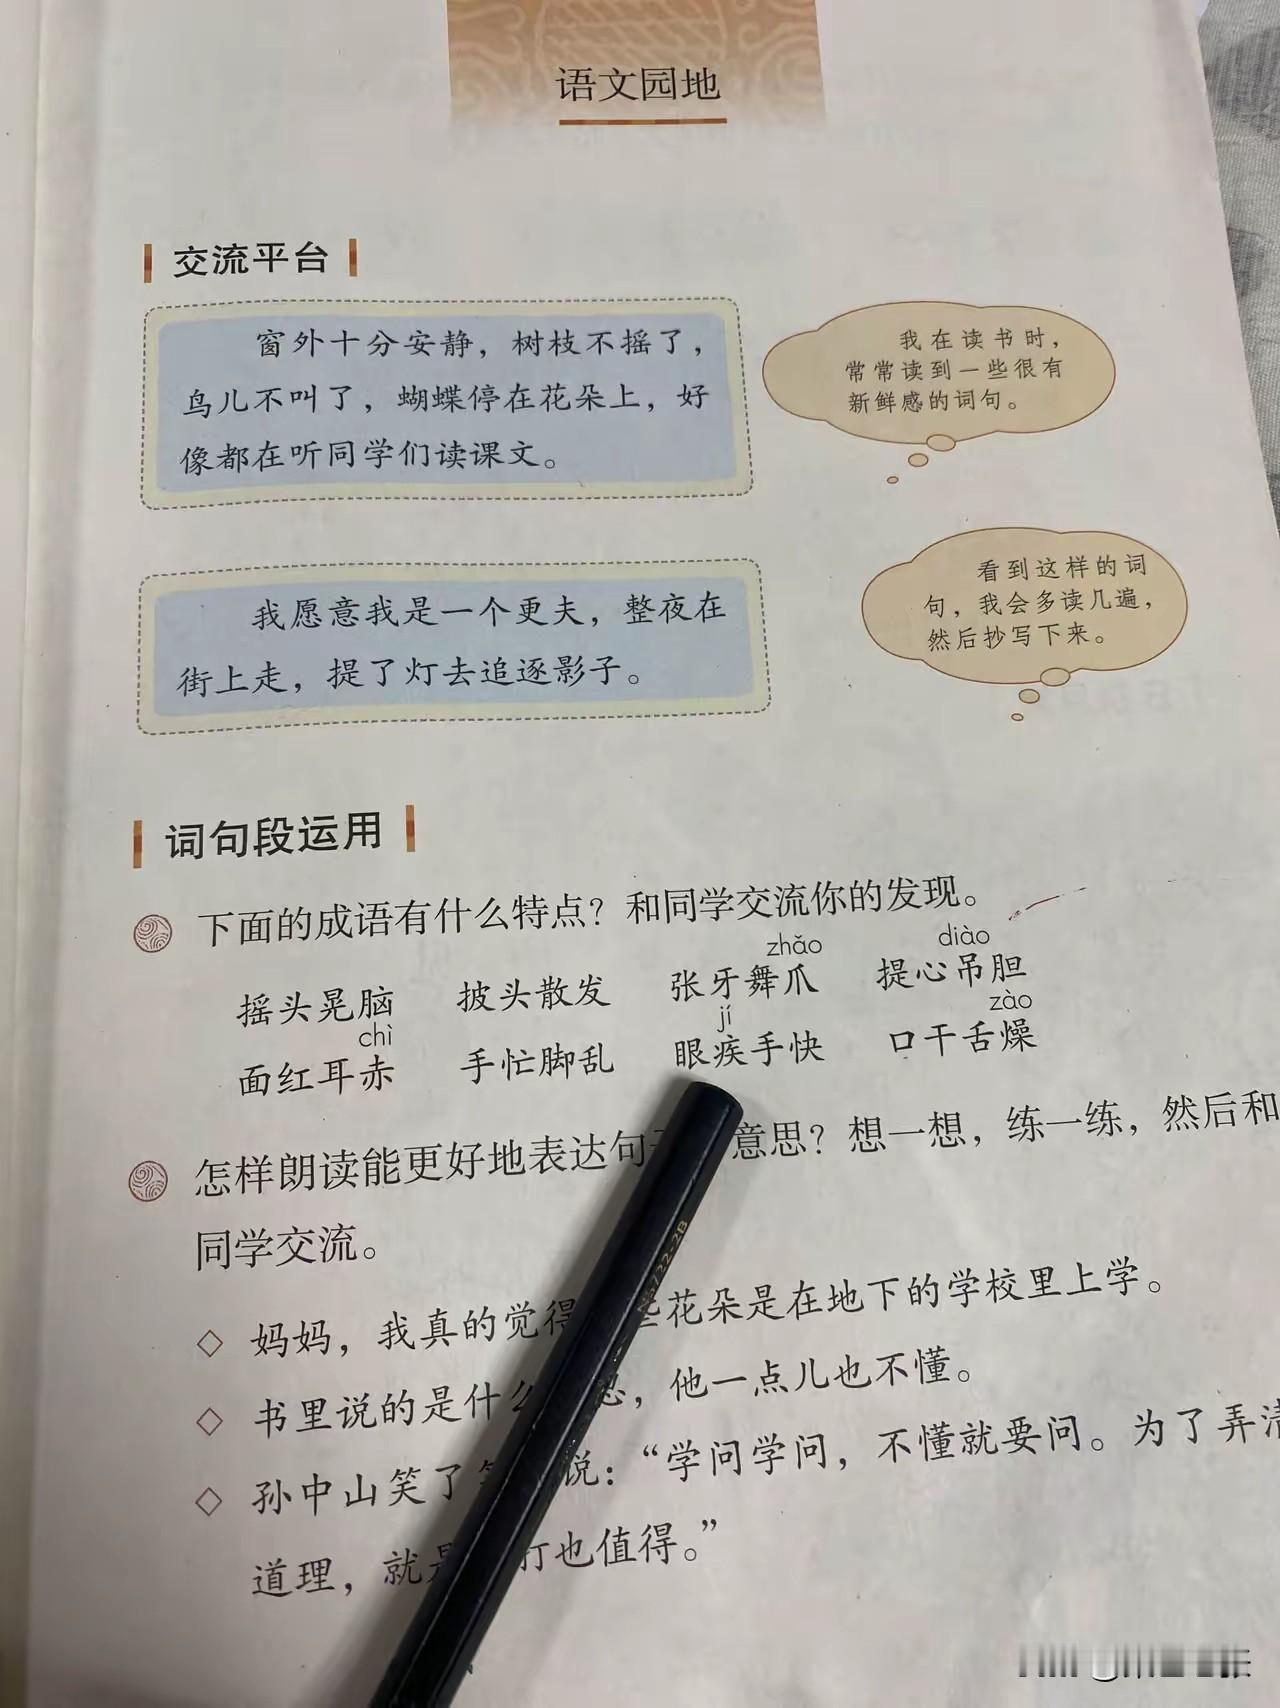 语文园地
交流平台
窗外十分安静，树枝不摇了，
鸟儿不叫了，蝴蝶停在花朵上，好
像都在听同学们读课文。
我在读书时，
常常读到一些很有
新鲜感的词句。
我愿意我是一个更夫，整夜在
街上走，提了灯去追逐影子。
看到这样的词
句，我会多读几遍，
然后抄写下来。
词句段运用
下面的成语有什么特点？和同学交流你的发现。
zhǎo diào
摇头晃脑 披头散发 张牙舞爪 提心吊胆
chì jí zào
面红耳赤 手忙脚乱 眼疾手快 口干舌燥
怎样朗读能更好地表达句 意思？想一想，练一练，然后和
同学交流。
妈妈，我真的觉得 花朵是在地下的学校里上学。
书里说的是什么 ，他一点儿也不懂。
孙中山笑了 说：“学问学问，不懂就要问。为了弄清
道理，就是 打也值得。”